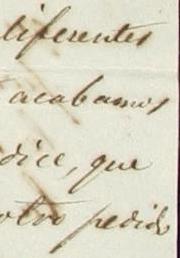 diferentes
acabamos
dice, que
otro pedido